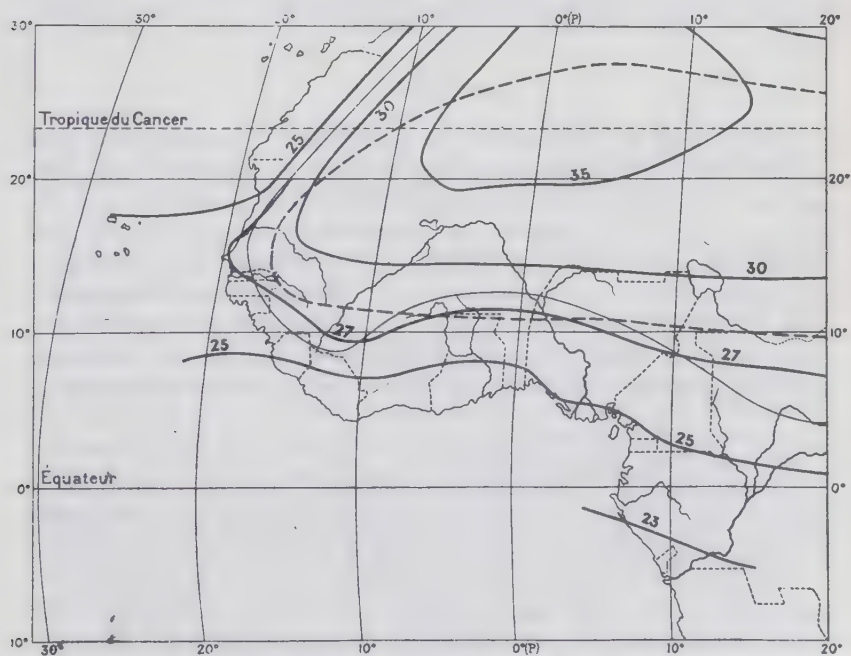 30° 30° 20° 10° 0°(P) 10° 20°
30
Tropique du Cancer
25
20° 35 20°
30
10° 27 10°
27
25
25
Équateur
0° 0°
23
10° 30° 20° 10° 0°(P) 10° 20° 10°